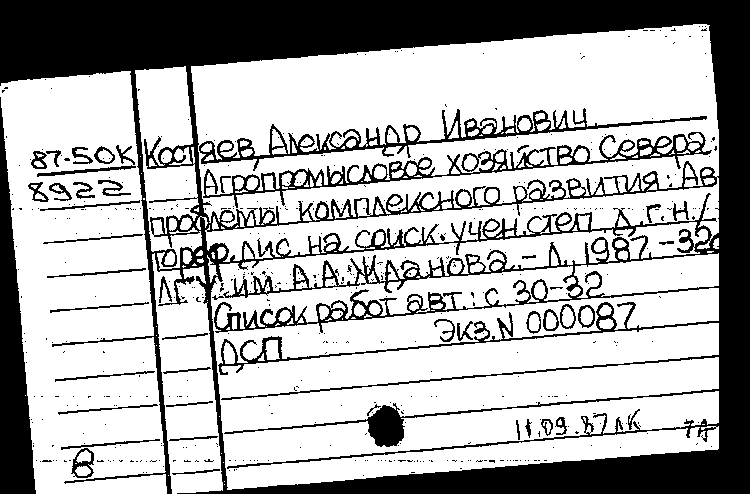 87-50К Костяев, Александр Иванович.
8922 Агропромысловое хозяйство Севера:
проблемы комплексного развития: Ав
тореф. дис. на соиск. учен. степ. д.г.н./
ЛГУ им. А.А. Жданова. - Л., 1987. - 32с
Список работ авт.: с 30-32
ДСП Экз. N 000087.
11.09.87 ЛК
8